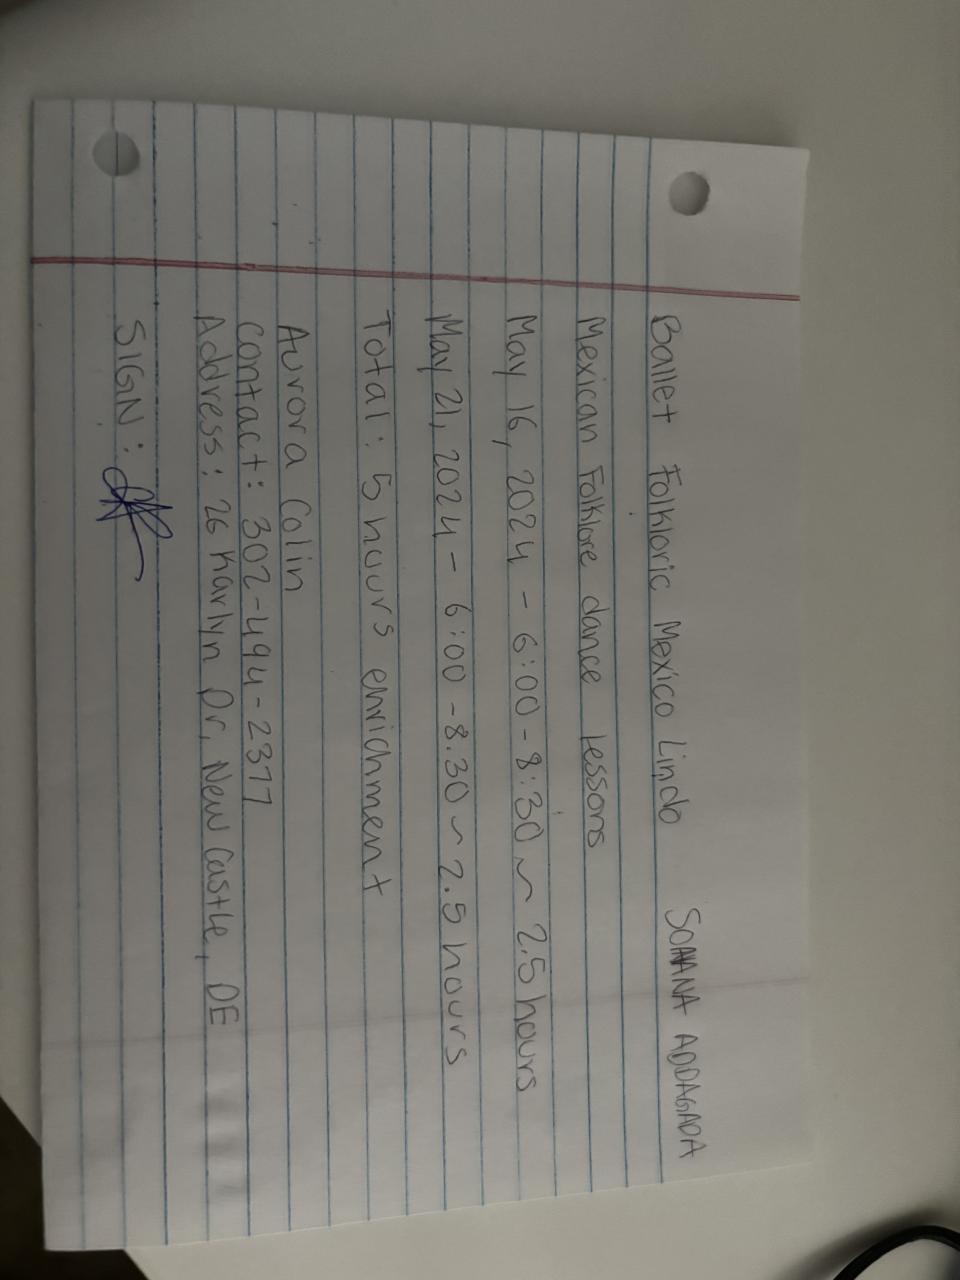 Ballet Folkloric Mexico Lindo SOHANA ADDAGADA
Mexican Folklore dance lessons
May 16, 2024 - 6:00 - 8:30 ~ 2.5 hours
May 21, 2024 - 6:00 - 8.30 ~ 2.5 hours
Total: 5 hours enrichment
Aurora Colin
Contact: 302-494-2377
Address: 26 Karlyn Dr, New Castle, DE
SIGN: